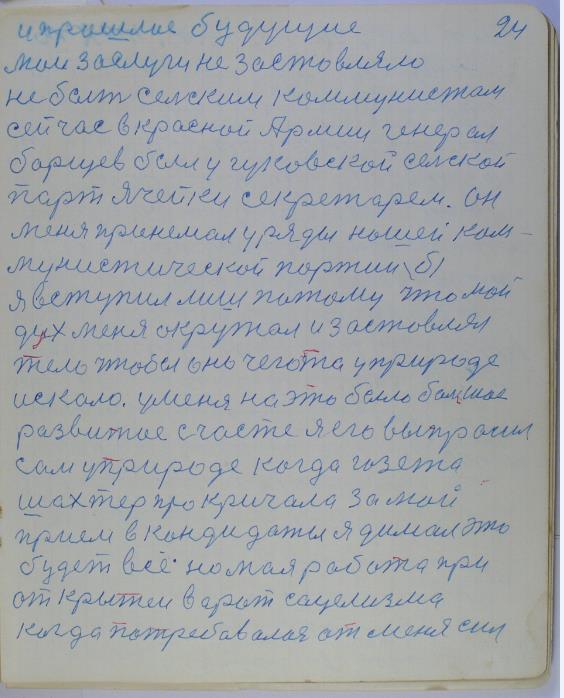 и прошлое будущие 24
мои заслуги не застовляло
не быт селским коммунистам
сейчас в красной Армии генерал
борщев был у гуковской селской
парт Ячейки секретарем. он
меня принемал у ряды ношей ком-
мунистической портии (б)
я вступил лиш потому что мой
дух меня окружал и застовлял
тело чтобы оно чегота у природе
искало. уменя на это было болшое
развитое счасте я его выпросил
сам у природе когда газета
шахтер про кричала за мой
прием в кондидаты я думал это
будет всё но мая работа при
от крытии варот сацелизма
когда потребавалоя от меня сил